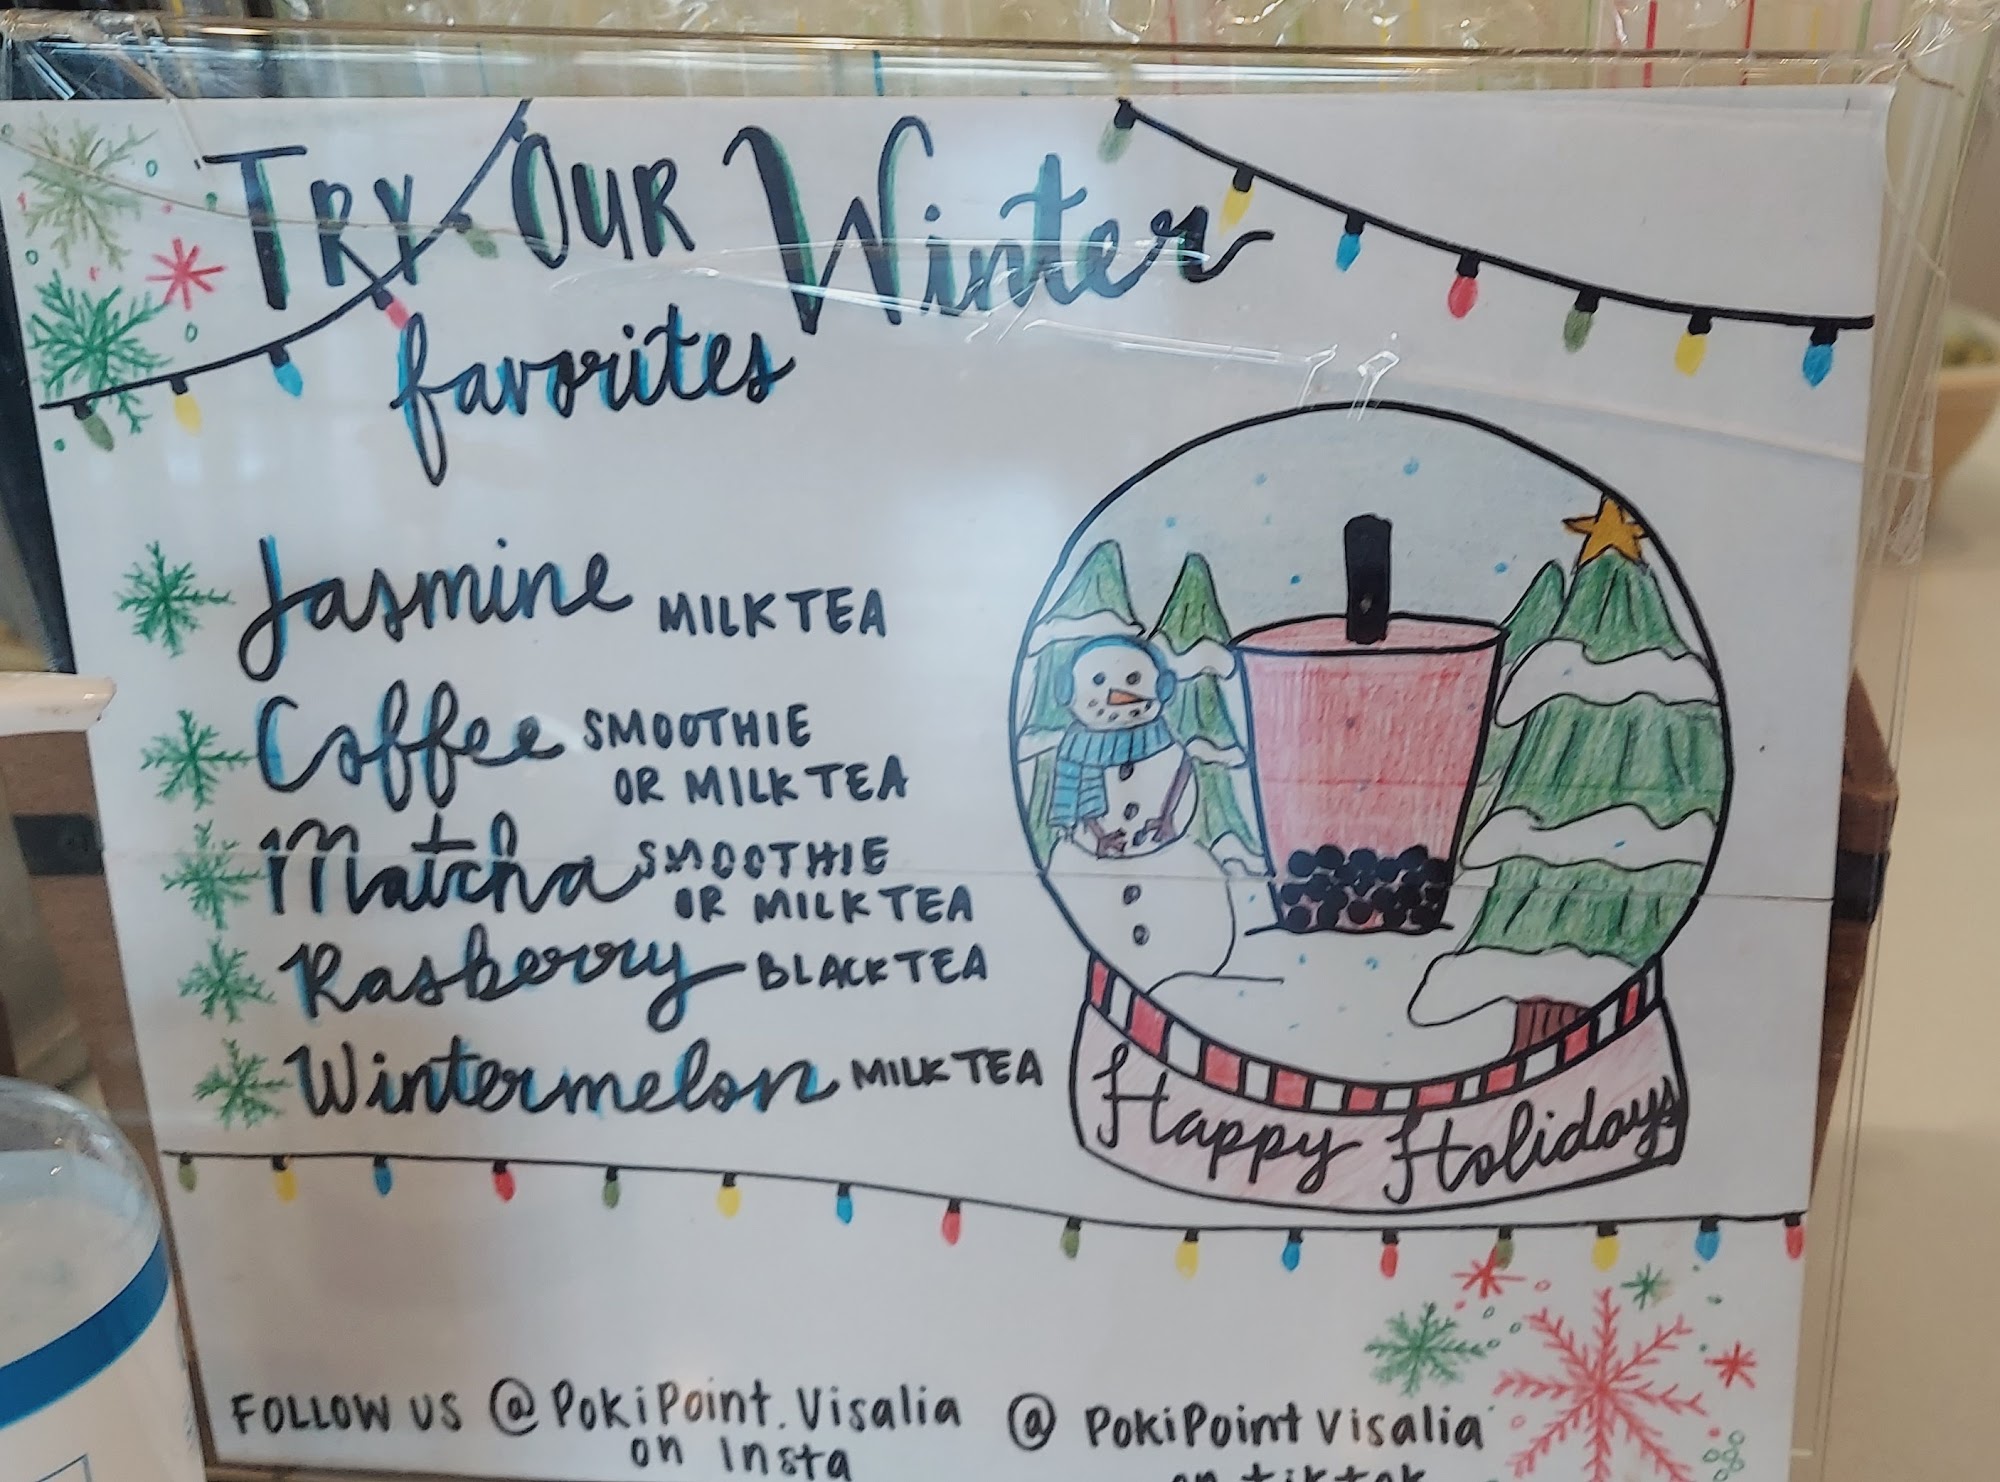 TRY OUR Winter
favorites
Jasmine MILK TEA
Coffee SMOOTHIE
OR MILK TEA
Matcha SMOOTHIE
OR MILK TEA
Rasberry BLACK TEA
Wintermelon MILK TEA
Happy Holidays
FOLLOW US @PokiPoint.Visalia
on Insta
@ PokiPointVisalia
on tiktok